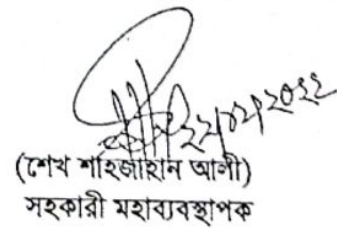 ২২/০২/২০২২
(শেখ শাহজাহান আলী)
সহকারী মহাব্যবস্থাপক